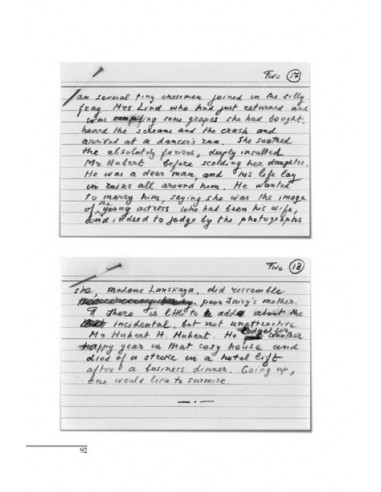 Two 17
an several tiny chessmen joined in the silly
fray. Mrs Lind who had just returned and
was some grapes she had bought,
heard the screams and the crash and
arrived at a dancer's run. She soothed
the absolutely furious, deeply insulted
Mr Hubert before scolding her daughter.
He was a dear man, and his life lay
in ruins all around him. He wanted
to marry him, saying she was the image
of the young actress who had been his wife,
and indeed to judge by the photographs
Two 18
she, madame Lanskaya, did resemble
poor Daisy's mother.
¶ There is little to add about the
incidental, but not unattractive
Mr Hubert H. Hubert. He lodged for another
happy year in that cosy house and
died of a stroke in a hotel lift
after a business dinner. Going up,
one would like to surmise.
92